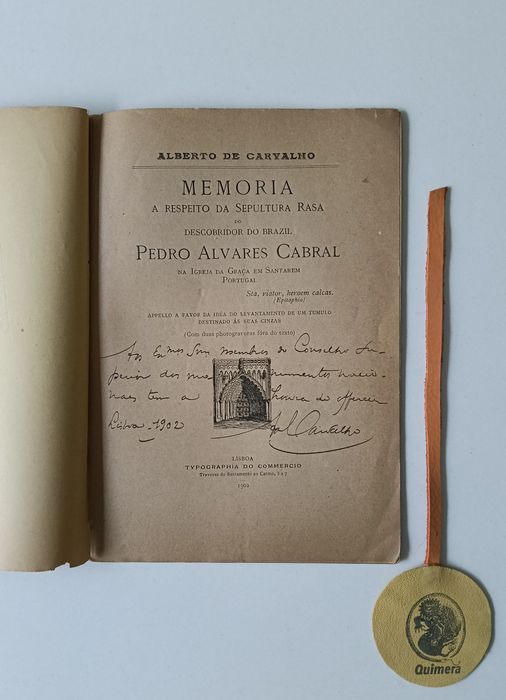 ALBERTO DE CARVALHO
MEMORIA
A RESPEITO DA SEPULTURA RASA
DO
DESCOBRIDOR DO BRAZIL
PEDRO ALVARES CABRAL
NA IGREJA DA GRAÇA EM SANTAREM
PORTUGAL
Sta, viator, heroem calcas.
(Epitaphio)
APPELLO A FAVOR DA IDÉA DO LEVANTAMENTO DE UM TUMULO
DESTINADO ÁS SUAS CINZAS
(Com duas photogravuras fóra do texto)
Aos Ex.mos Snrs membros do Conselho Su-
perior dos mo numentos nacio-
naes tem a honra de offerecer
Lisboa - 1902 Carvalho
LISBOA
TYPOGRAPHIA DO COMMERCIO
Travessa do Sacramento ao Carmo, 3 a 7
1902
Quimera